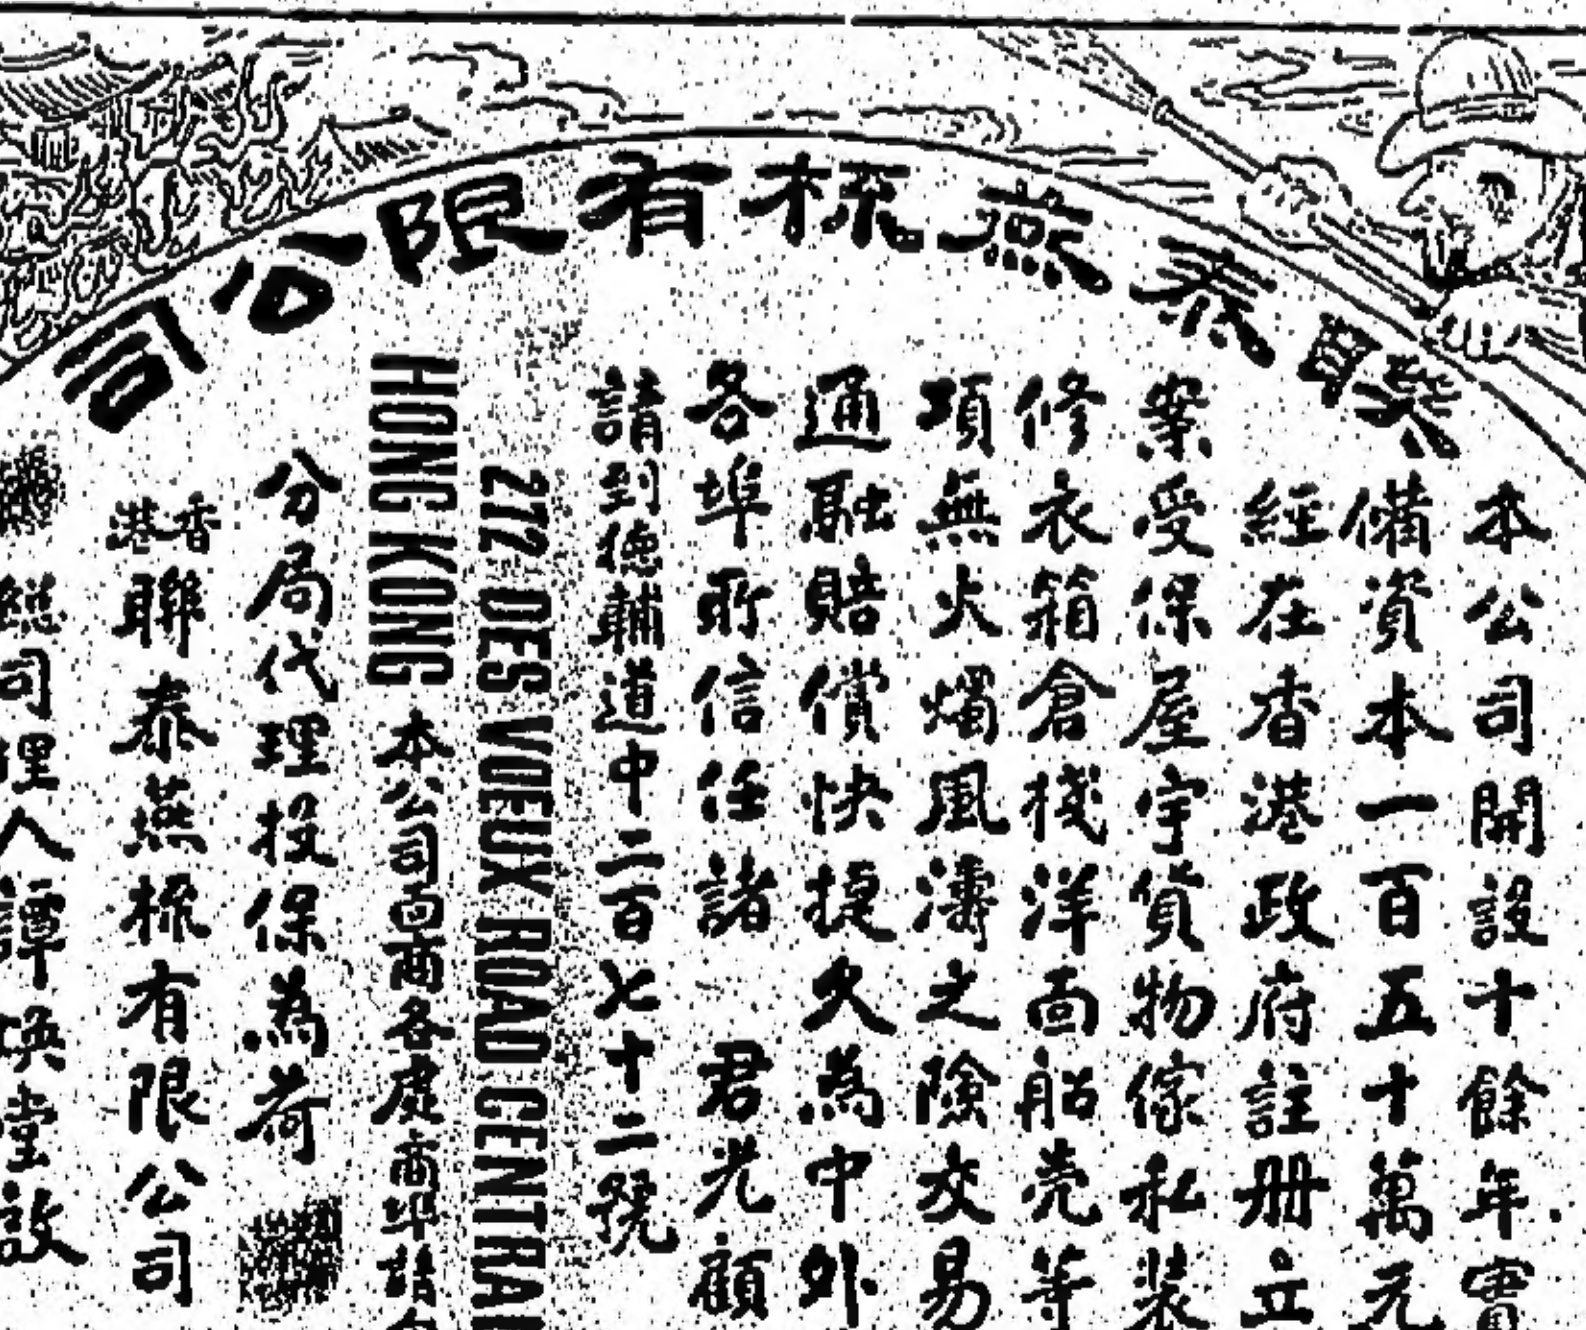 聯泰燕梳有限公司
本公司開設十餘年實
備資本一百五十萬元
經在香港政府註册立
案受保屋宇貨物傢私裝
修衣箱倉棧洋面船壳等
項無火燭風濤之險交易
通融賠償快捷久為中外
各埠所信任諸 君光顧
請到德輔道中二百七十二號
272 DES VOEUX ROAD CENTRAL
HONG KONG
本公司面商各處商埠請
分局代理投保為荷
香港聯泰燕梳有限公司
總司理人譚煥堂啟